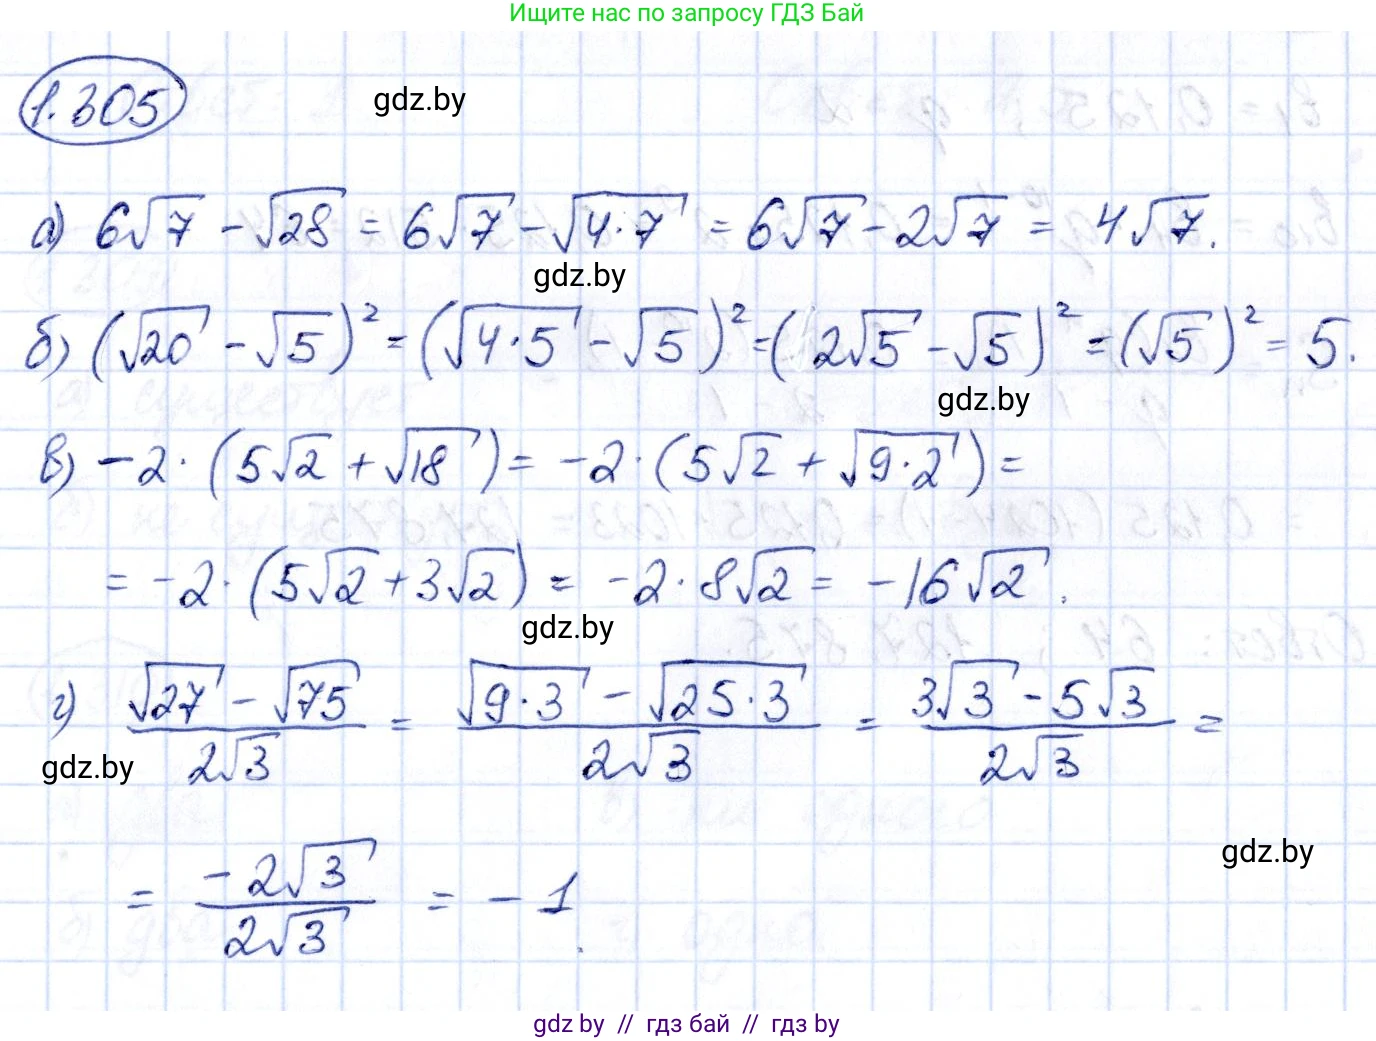 Ищите нас по запросу ГДЗ Бай
1.305
gdz.by
а) 6√7 - √28 = 6√7 - √4·7 = 6√7 - 2√7 = 4√7.
gdz.by
б) (√20 - √5)² = (√4·5 - √5)² = (2√5 - √5)² = (√5)² = 5.
gdz.by
в) -2·(5√2 + √18) = -2·(5√2 + √9·2) =
= -2·(5√2 + 3√2) = -2·8√2 = -16√2.
gdz.by
г) (√27 - √75)/(2√3) = (√9·3 - √25·3)/(2√3) = (3√3 - 5√3)/(2√3) =
gdz.by
gdz.by
= (-2√3)/(2√3) = -1.
gdz by // гдз бай // гдз by